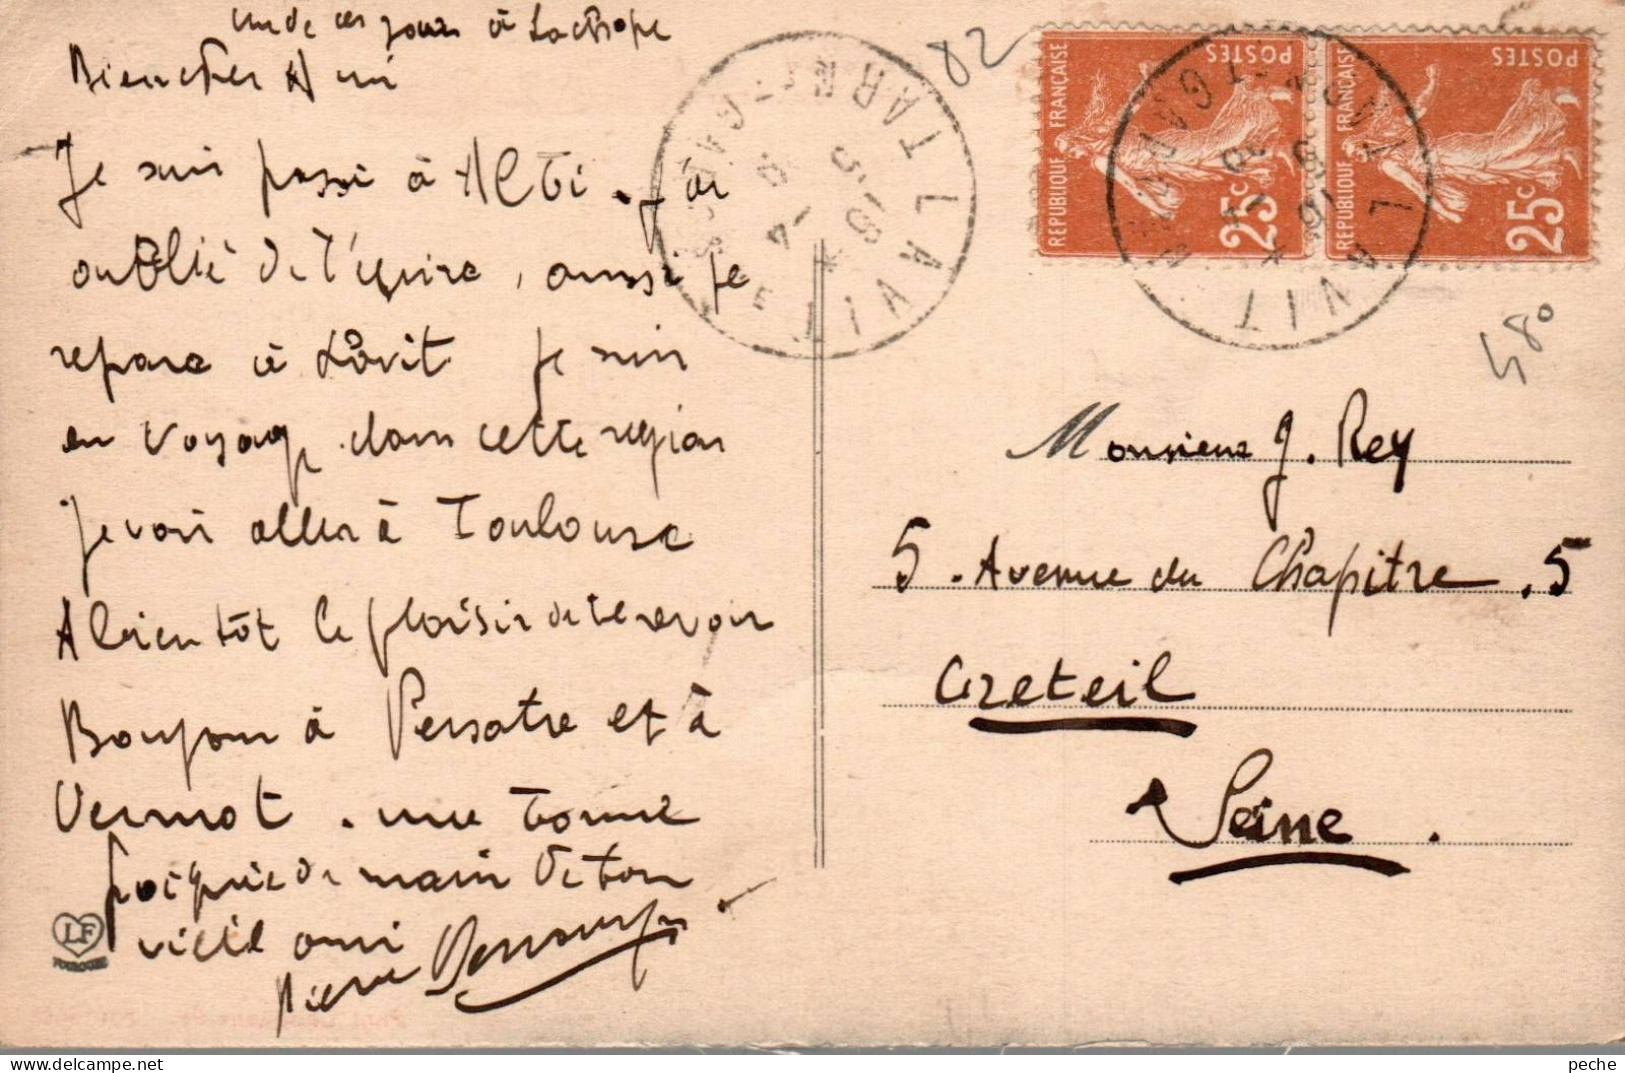 un de ces jours à
Bien cher Ami
Je suis passé à Albi. J'ai
oublié de t'écrire, aussi je
repare à Lavit Je suis
en voyage dans cette region
je vais aller à Toulouse
A bientôt le plaisir de te revoir
Bonjour à Persatre et à
Vermot. une bonne
poignée de main De ton
vieil ami
Pierre
LF
TOULOUSE
82
LAVIT
TARN-ET-GAR
REPUBLIQUE FRANÇAISE
POSTES
25c
REPUBLIQUE FRANÇAISE
POSTES
25c
LAVIT
480
Monsieur J. Rey
5. Avenue du Chapitre. 5
Creteil
Seine.
peche